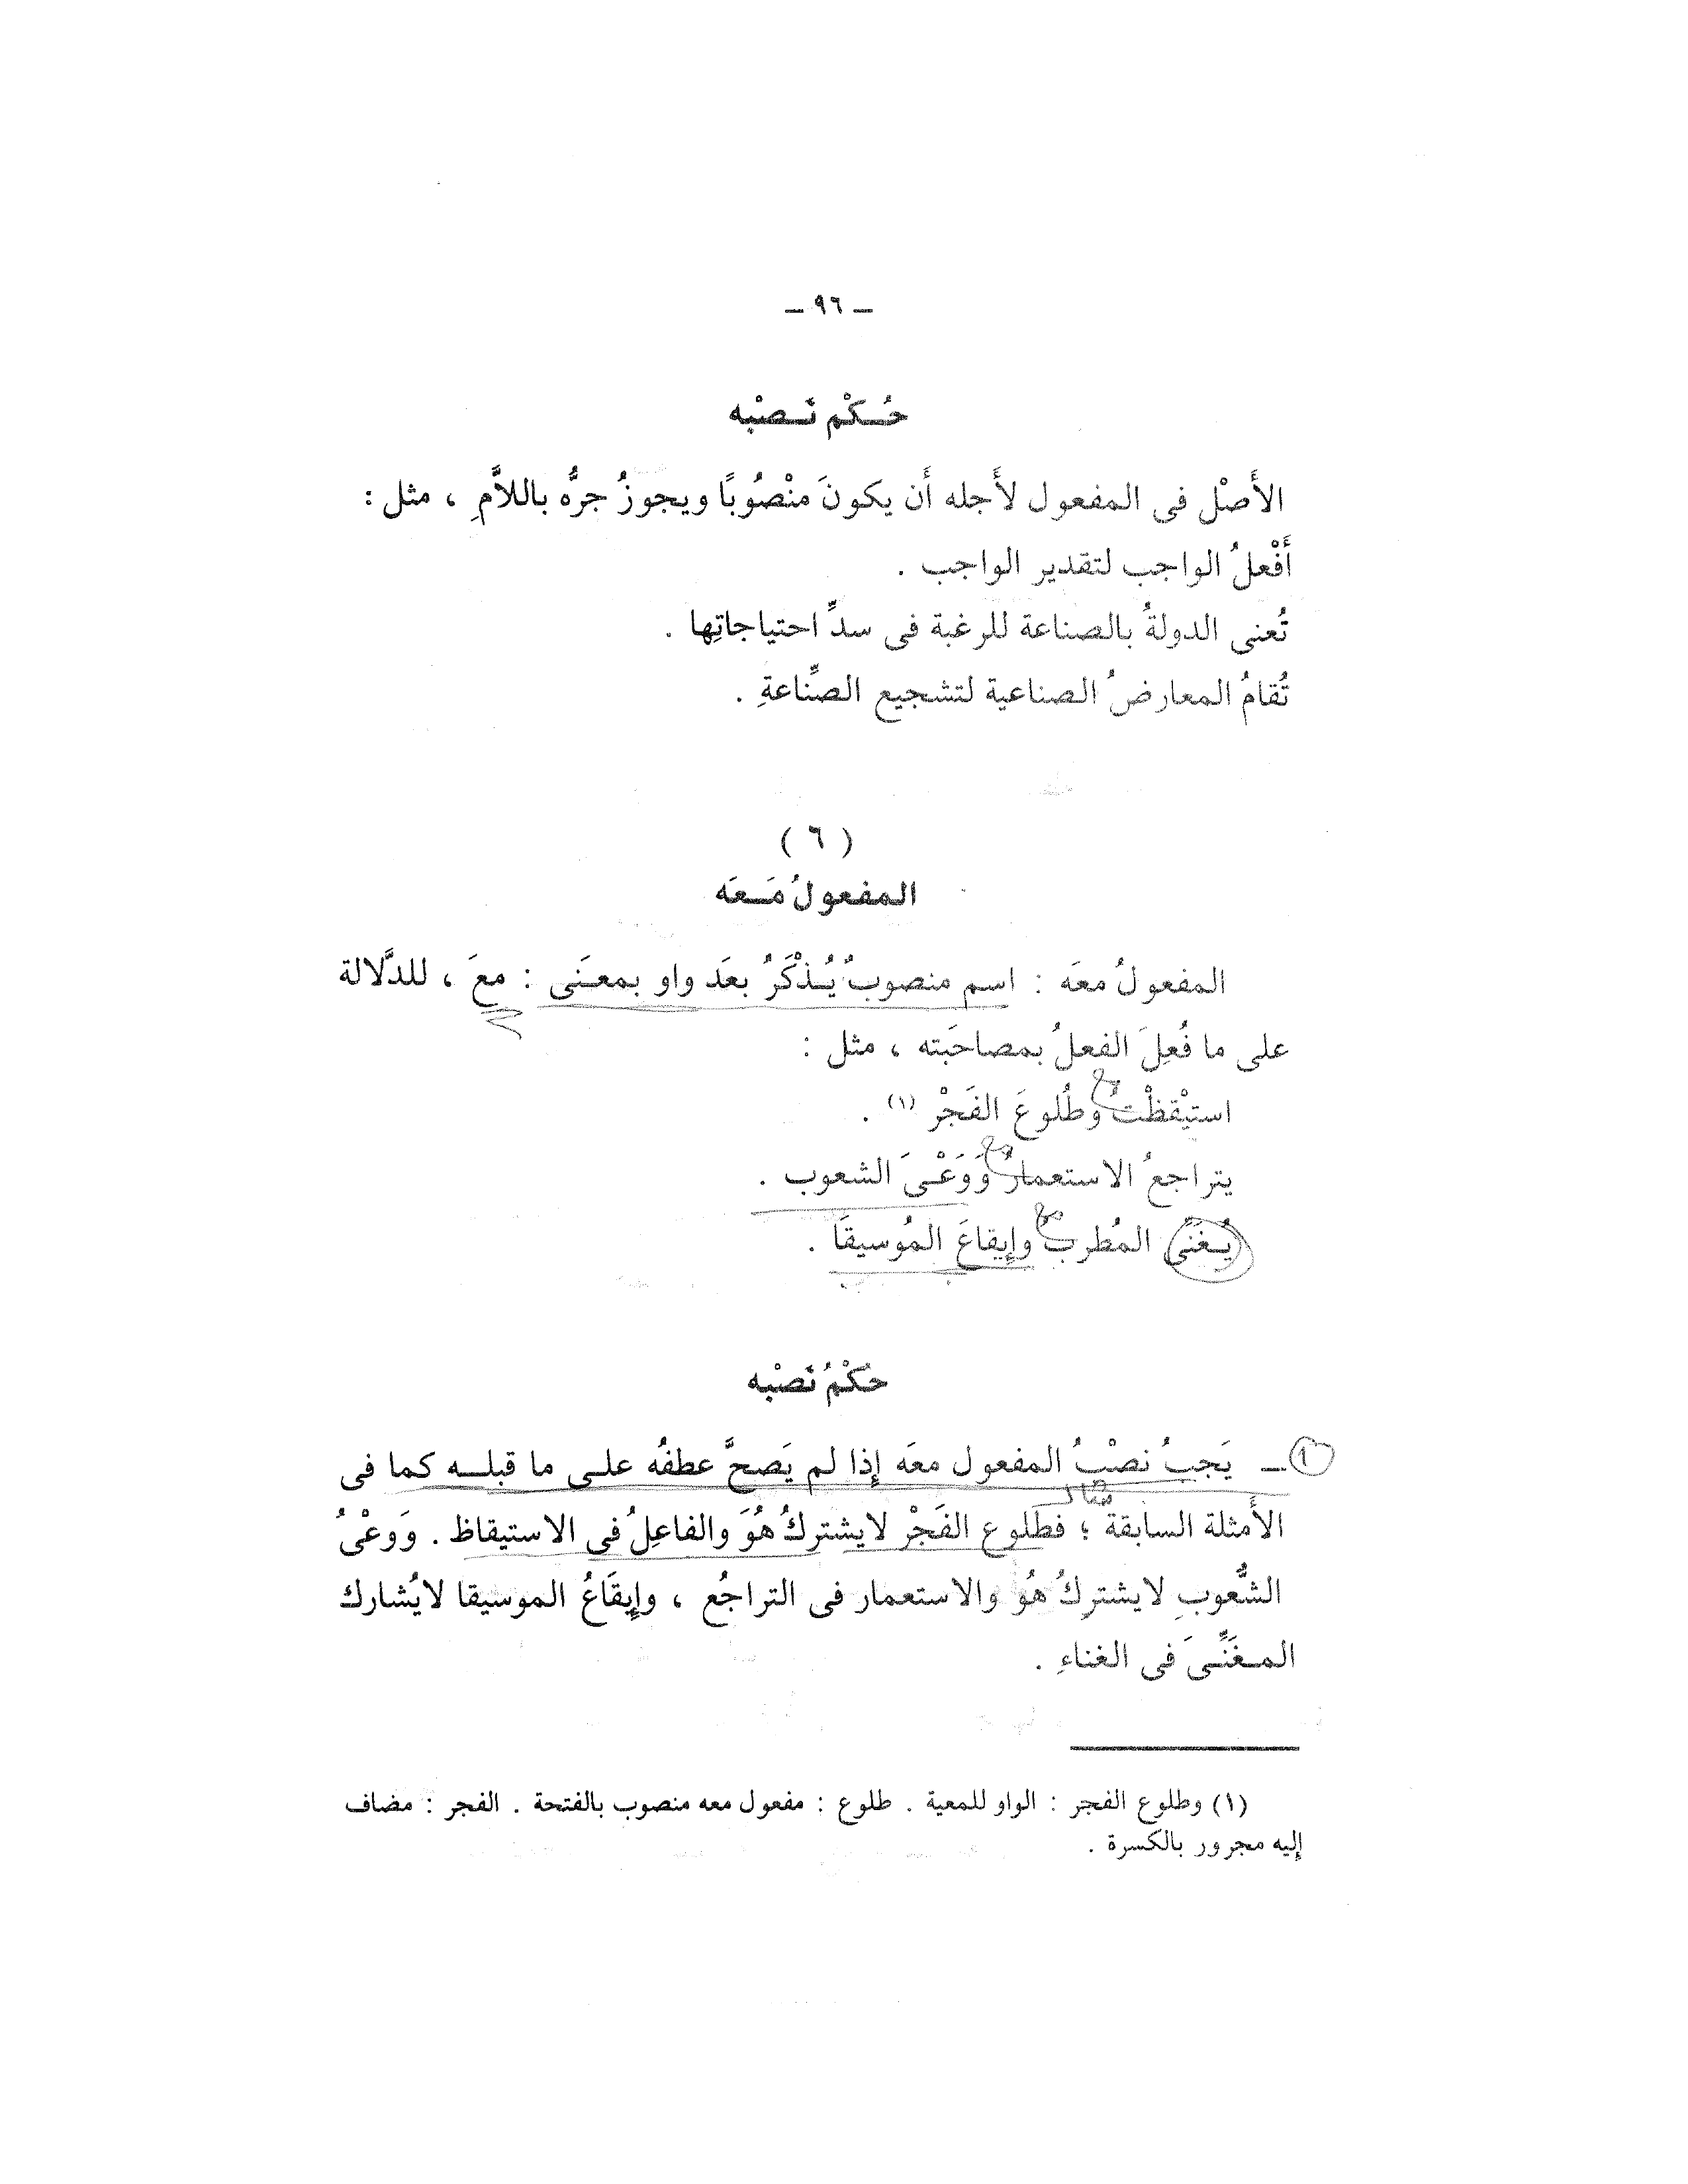 ــ ٩٦ ــ
حُـكْم نَـصبْه
الأَصْل فى المفعول لأَجله أَن يكونَ منْصُوبًا ويجوزُ جرُّه باللاَّمِ ، مثل :
أَفْعلُ الواجب لتقدير الواجب .
تُعنى الدولةُ بالصناعة للرغبة فى سدِّ احتياجاتِها .
تُقامُ المعارضُ الصناعية لتشجيع الصِّناعةِ .
( ٦ )
المفعولُ مَـعَه
المفعولُ معَه : اسم منصوبٌ يُـذْكَرُ بعَد واو بمعنَى : معَ ، للدَّلالة
على ما فُعِلَ الفعلُ بمصاحَبته ، مثل :
مع
استيْقظْتُ وطُلوعَ الفَجْر (١) .
مع
يتراجعُ الاستعمارُ وَوَعْـىَ الشعوب .
مع
يُـغَنىِّ المُطربُ وإِيقاعَ المُوسيقَا .
حُكْمُ نَصبْه
١ ــ يَجبُ نصْبُ المفعول معَه إِذا لم يَصحَّ عطفُه علـى ما قبلـه كما فى
مثال
الأَمثلة السابقة ؛ فطلوع الفَجْر لايشتركُ هُوَ والفاعِلُ فى الاستيقاظ . وَوعْىُ
الشُّعوبِ لايشتركُ هُو والاستعمار فى التراجُع ، وإِيقَاعُ الموسيقا لايُشارك
المـغَنِّـىَ فى الغناءِ .
(١) وطلوع الفجر : الواو للمعية . طلوع : مفعول معه منصوب بالفتحة . الفجر : مضاف
إليه مجرور بالكسرة .